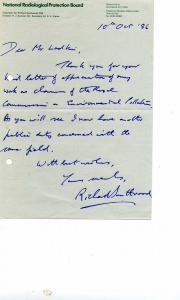 National Radiological Protection Board
10th Oct '86
Dear Mr
Thank you for your
kind letter of appreciation of my
work as chairman of the Royal
Commission on Environmental Pollution.
As you will see I now have another
public duty concerned with the
same field.
With best wishes,
Yours sincerely,
Richard Southwood